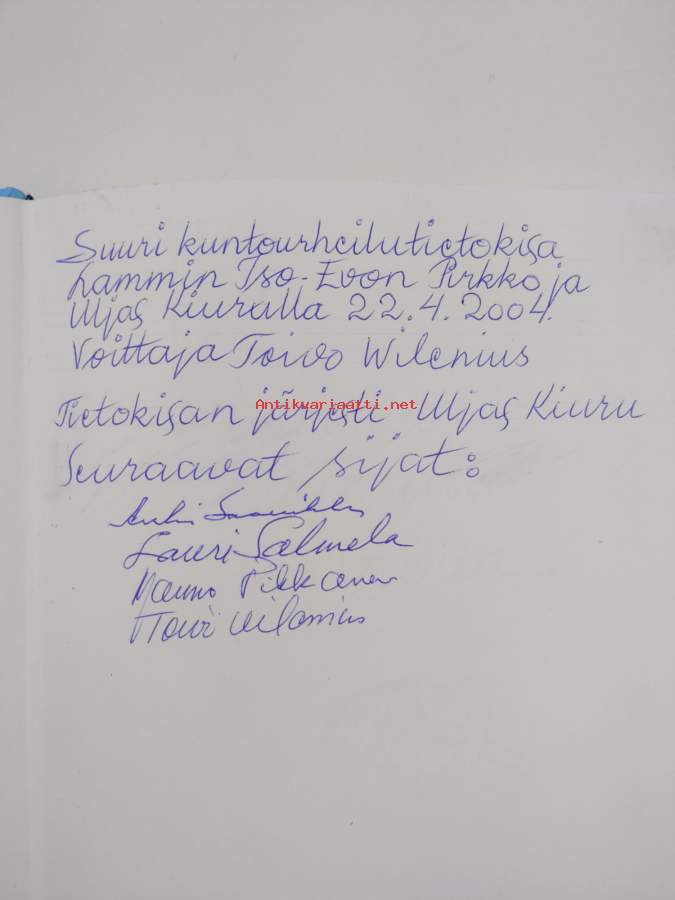 Suuri kuntourheilutietokisa
Lammin Iso-Evon Pirkko ja
Uljas Kiuralla 22.4.2004.
Voittaja Toivo Wilenius
Antikvariaatti.net
Tietokisan järjesti Uljas Kiuru
Seuraavat sijat:
Lauri Salmela
Mauno Pikkanen